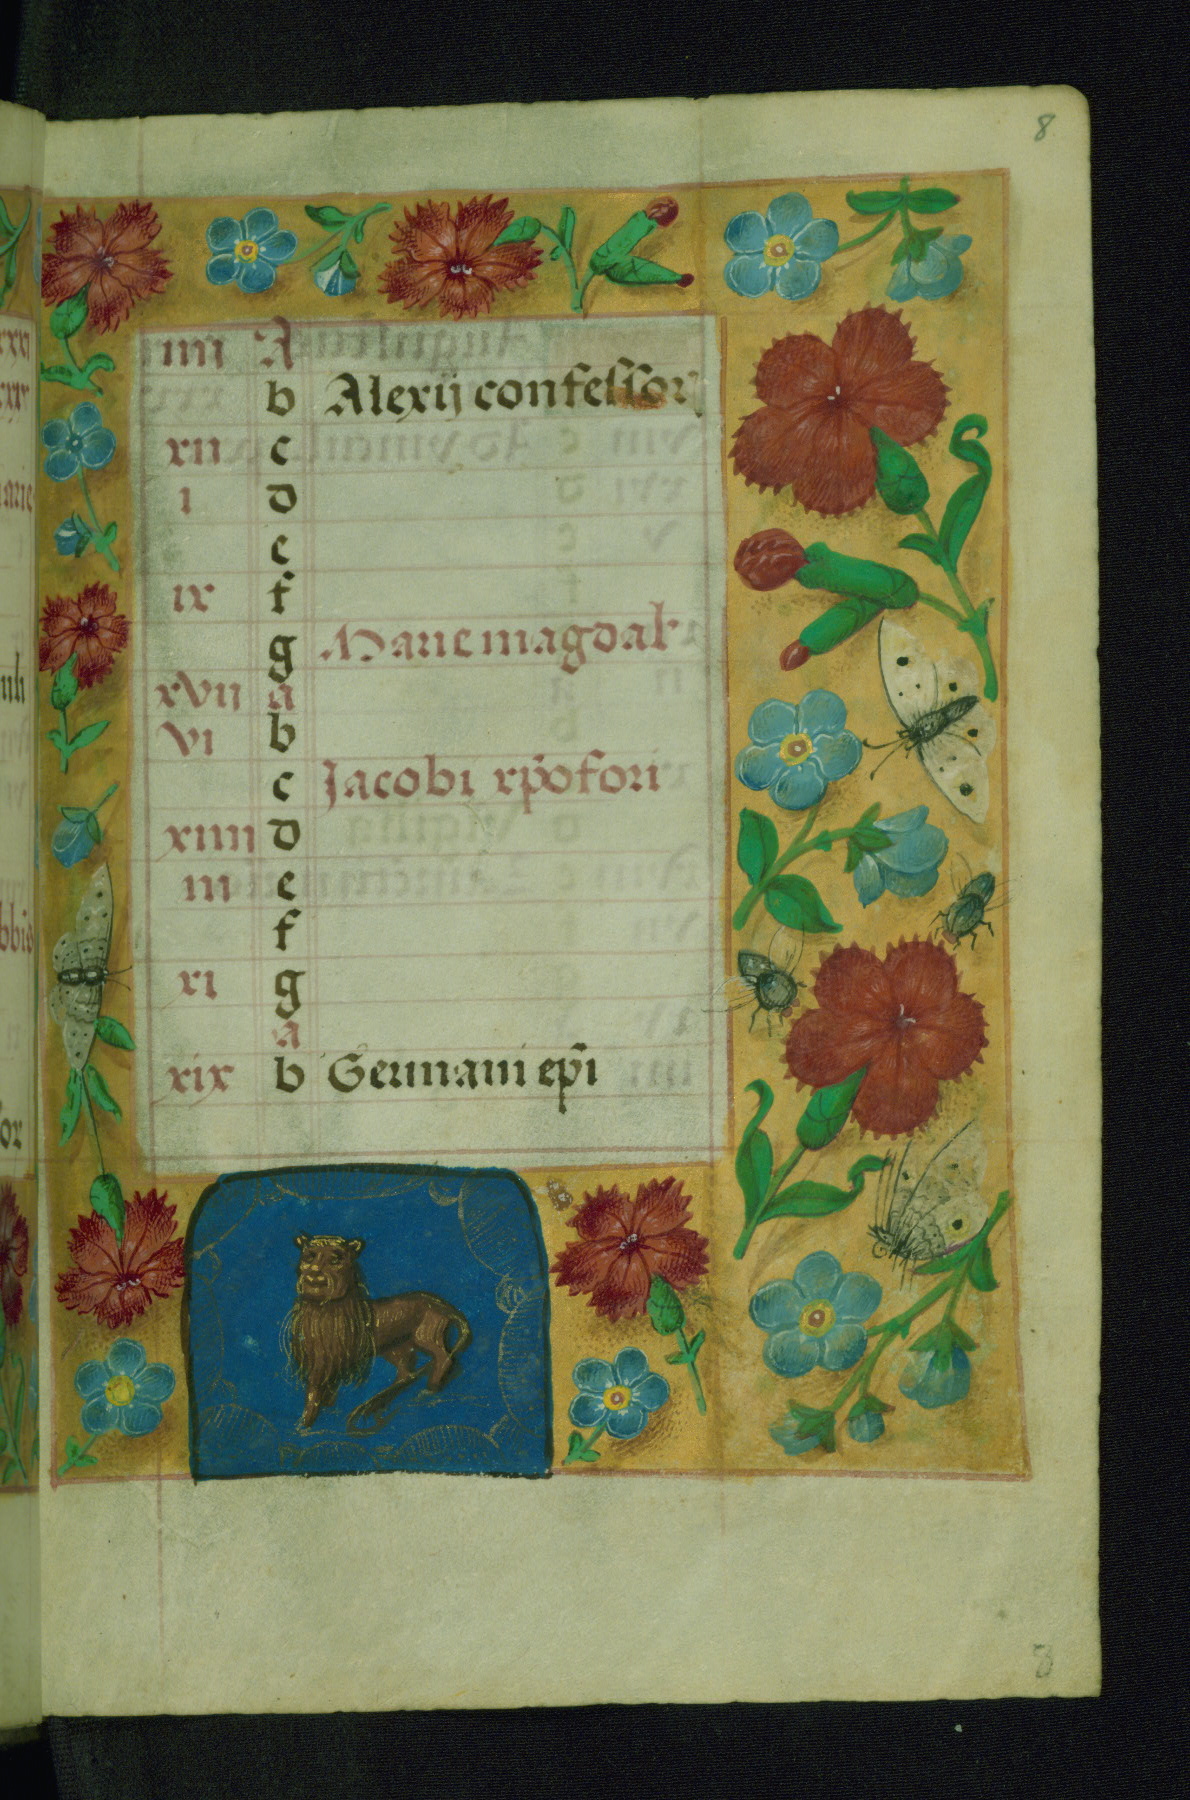 8
iiii A
b Alexij confessor
xii c
i d
e
ix f
g Marie magdal
xvii a
vi b
c Jacobi xp̄ofori
xiiii d
iii e
f
xi g
a
xix b Germani ep̄i
8